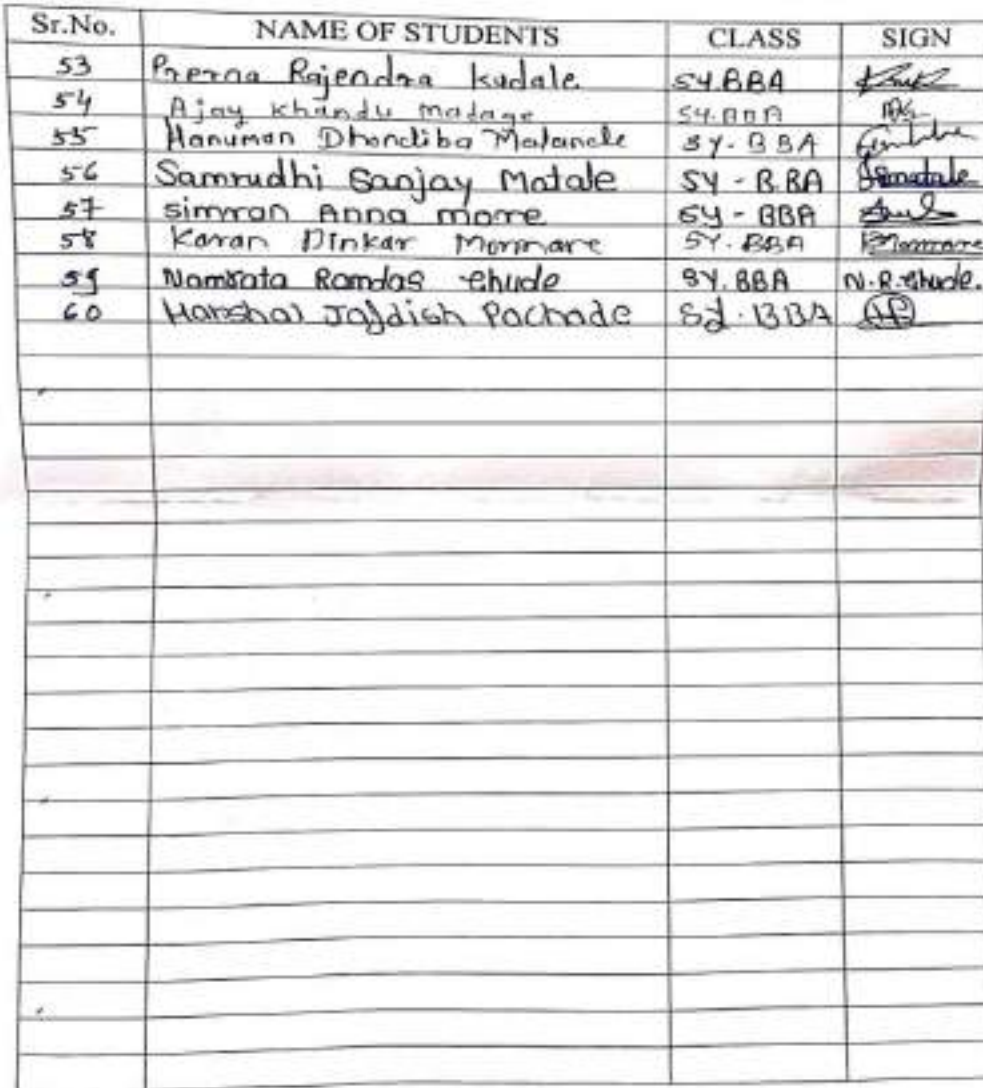 Sr.No. NAME OF STUDENTS CLASS SIGN
53 Prerna Rajendra Kudale SY.BBA
54 Ajay Khandu Madage SY.BBA
55 Hanuman Dhondiba Malande SY-BBA
56 Samrudhi Sanjay Matale SY-B.BA Smatale
57 Simran Anna more SY-BBA
58 Karan Dinkar Mormare SY.BBA Mormare
59 Namrata Ramdas Ghude SY.BBA N.R.Ghude.
60 Harshal Jagdish Pachade Sy.BBA